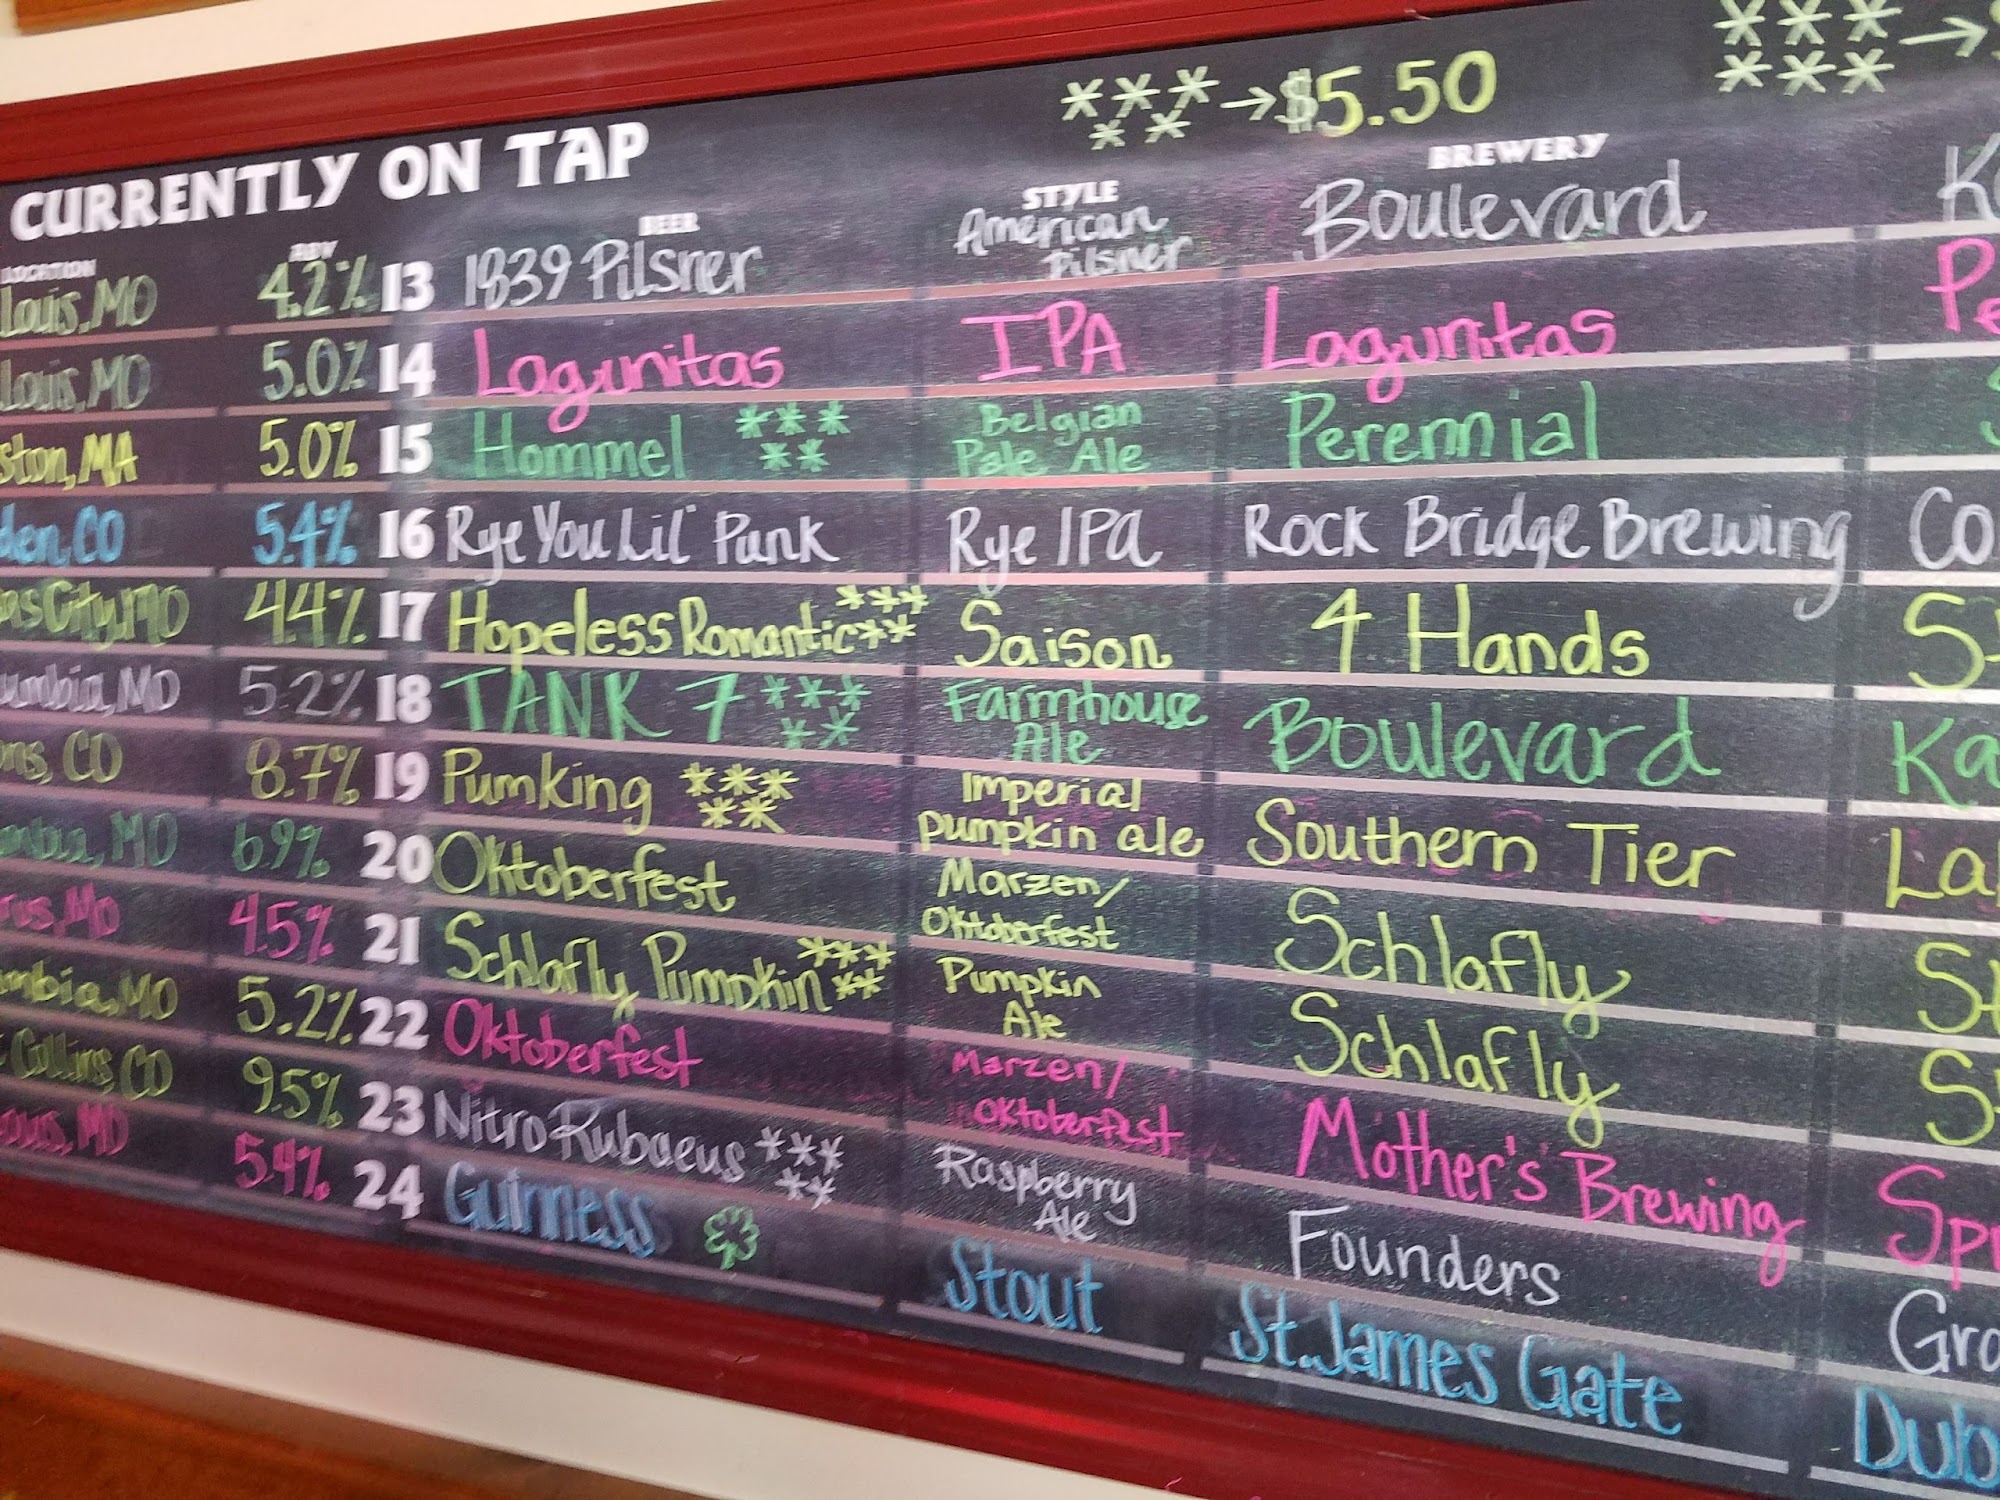 *** ** → $5.50
*** *** →
CURRENTLY ON TAP
LOCATION ABV BEER STYLE BREWERY
Louis, MO 4.2% 13 1839 Pilsner American Pilsner Boulevard
Louis, MO 5.0% 14 Lagunitas IPA Lagunitas
MA 5.0% 15 Hommel *** ** Belgian Pale Ale Perennial
CO 5.4% 16 Rye You Lil' Punk Rye IPA Rock Bridge Brewing
City, MO 4.4% 17 Hopeless Romantic *** ** Saison 4 Hands
MO 5.2% 18 TANK 7 *** ** Farmhouse Ale Boulevard
CO 8.7% 19 Pumking *** ** Imperial pumpkin ale Southern Tier
MO 6.9% 20 Oktoberfest Marzen/ Oktoberfest Schlafly
MO 4.5% 21 Schlafly Pumpkin *** ** Pumpkin Ale Schlafly
MO 5.2% 22 Oktoberfest Marzen/ Oktoberfest Mother's Brewing
Collins, CO 9.5% 23 Nitro Rubaeus *** ** Raspberry Ale Founders
MO 5.4% 24 Guinness Stout St. James Gate